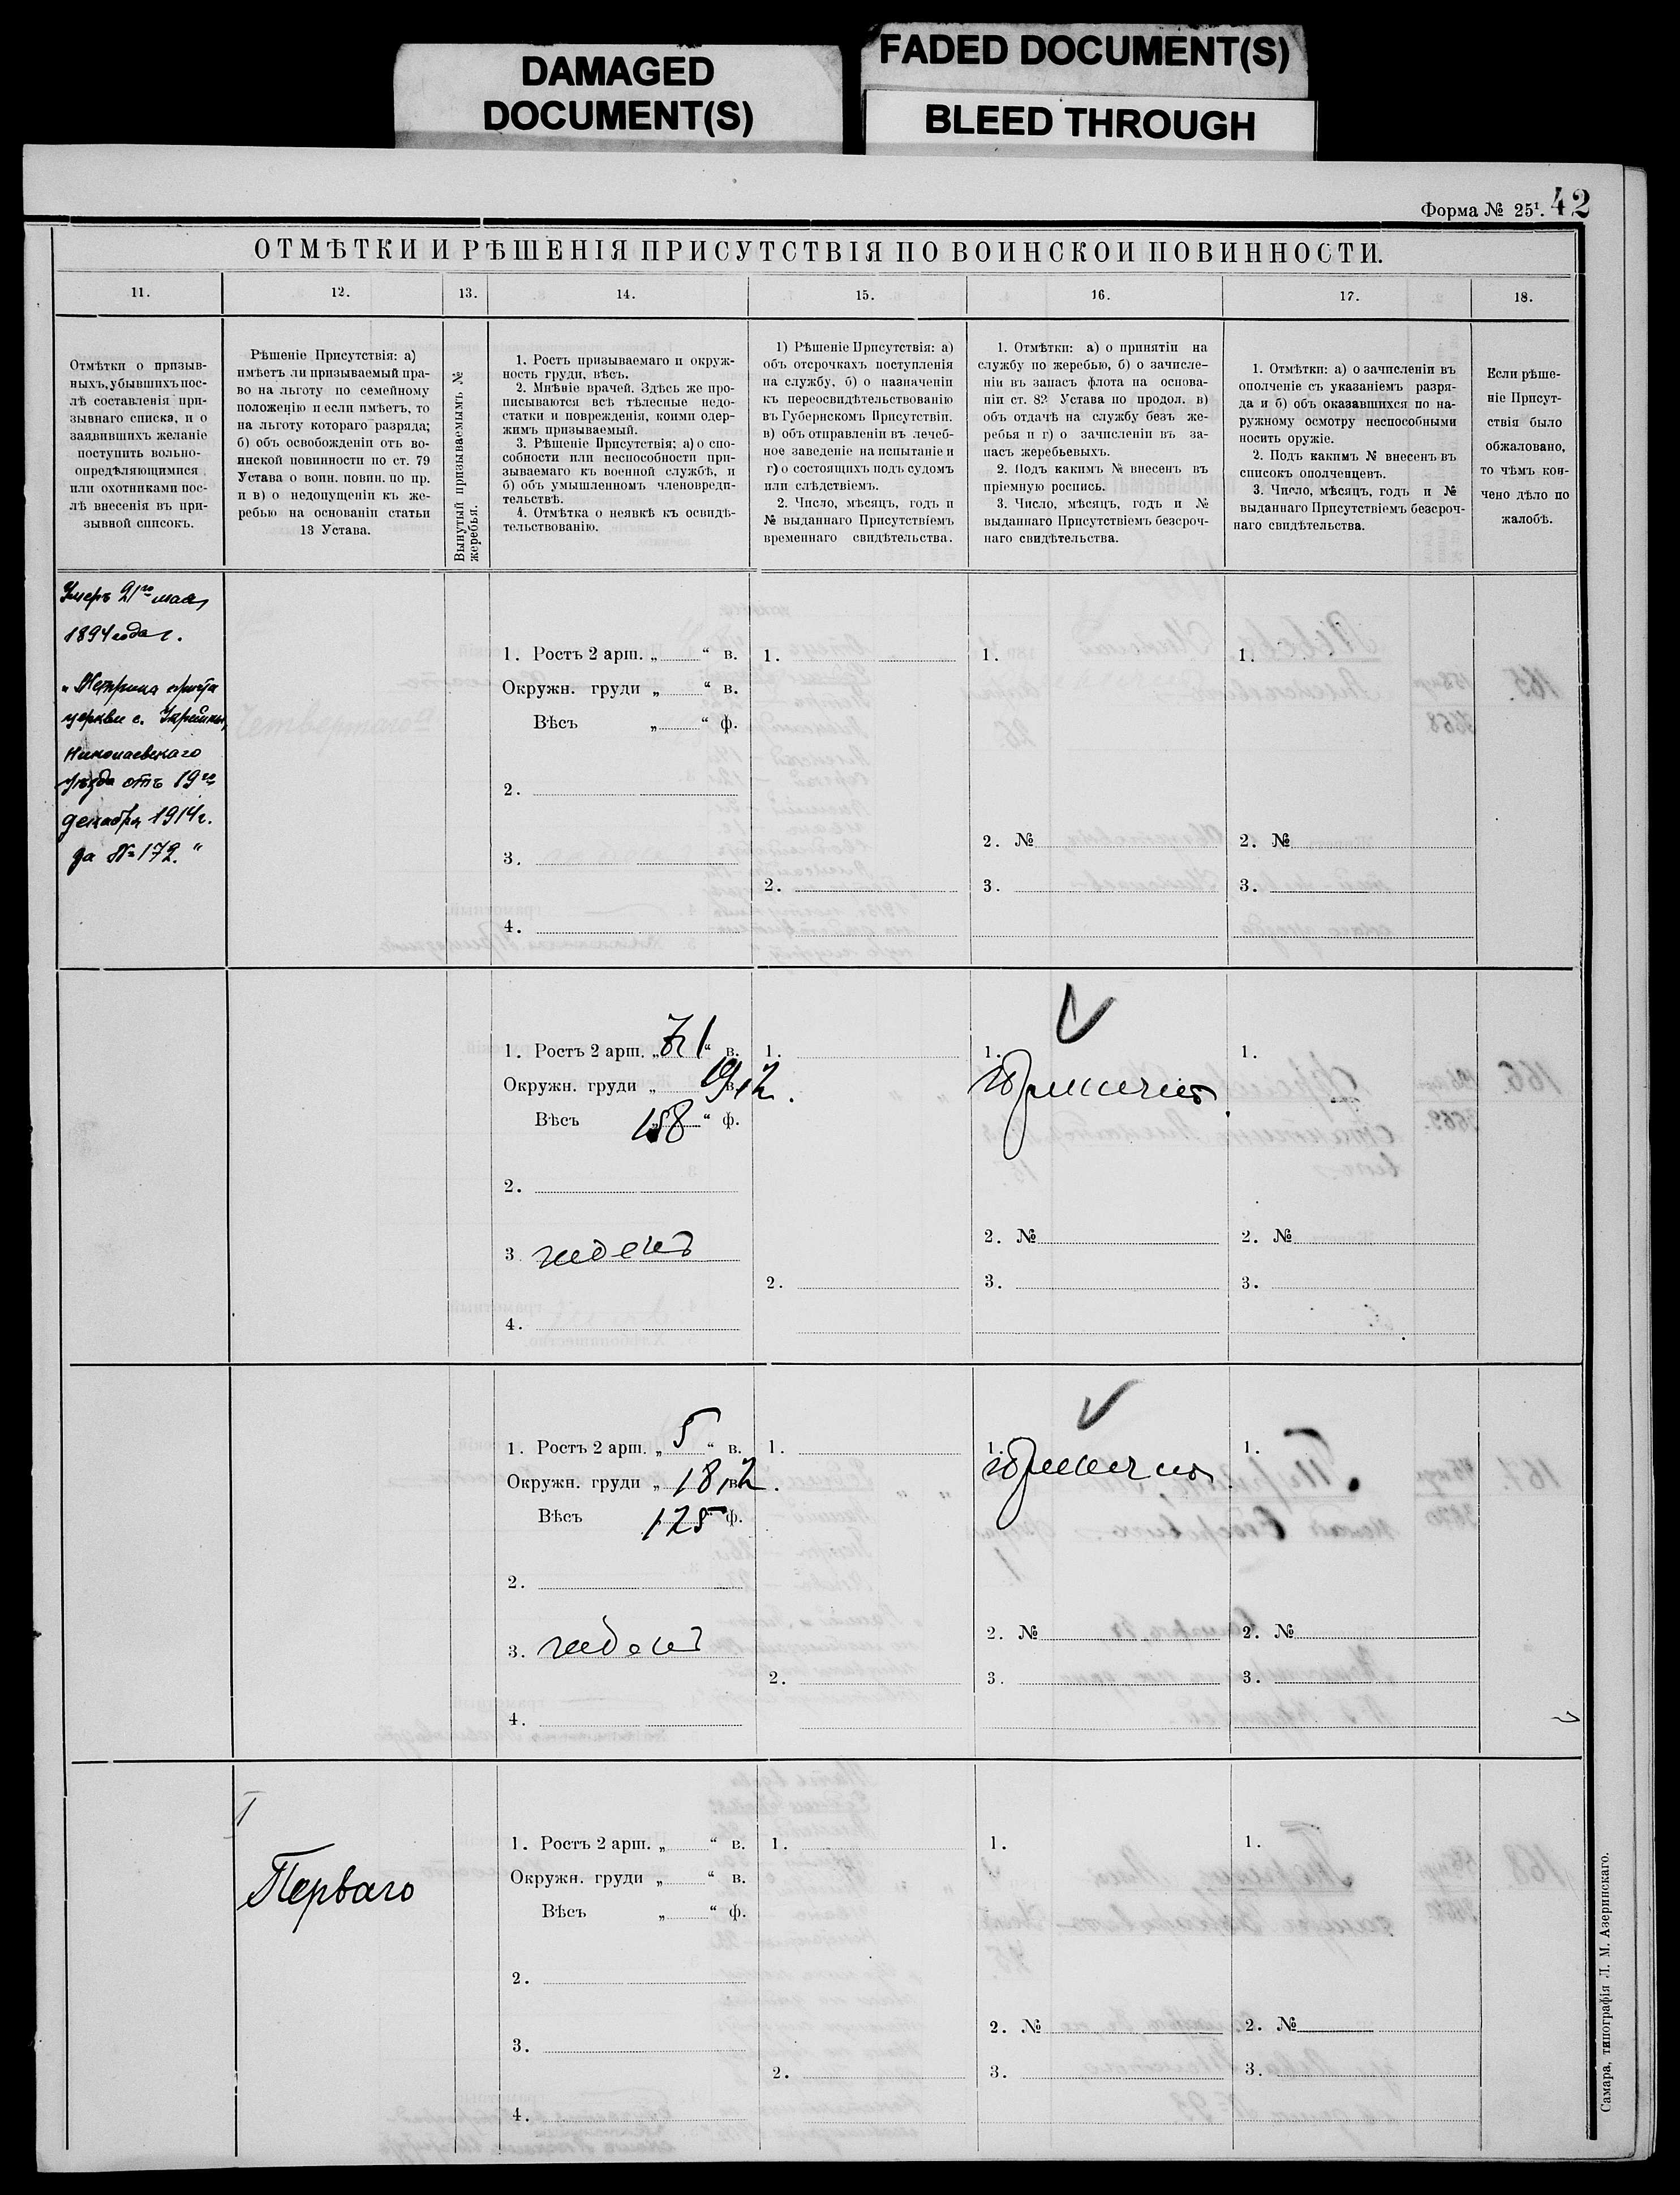 DAMAGED
DOCUMENT(S)
FADED DOCUMENT(S)
BLEED THROUGH
Форма № 25¹. 42
ОТМѢТКИ И РѢШЕНІЯ ПРИСУТСТВІЯ ПО ВОИНСКОИ ПОВИННОСТИ.
11.
12.
13.
14.
15.
16.
17.
18.
Отмѣтки о призыв-
ныхъ, убывшихъ пос-
лѣ составленія при-
зывнаго списка, и о
заявившихъ желаніе
поступить вольно-
опредѣляющимися
или охотниками пос-
лѣ внесенія въ при-
зывной списокъ.
Рѣшеніе Присутствія: а)
имѣетъ ли призываемый пра-
во на льготу по семейному
положенію и если имѣетъ, то
на льготу котораго разряда;
б) объ освобожденіи отъ во-
инской повинности по ст. 79
Устава о воин. повин. по пр.
и в) о недопущеніи къ же-
ребью на основаніи статьи
13 Устава.
Вынутый призываемымъ №
жеребья.
1. Ростъ призываемаго и окруж-
ность груди, вѣсъ.
2. Мнѣніе врачей. Здѣсь же про-
писываются всѣ тѣлесные недо-
статки и поврежденія, коими одер-
жимъ призываемый.
3. Рѣшеніе Присутствія; а) о спо-
собности или неспособности при-
зываемаго къ военной службѣ, и
б) объ умышленномъ членовреди-
тельствѣ.
4. Отмѣтка о неявкѣ къ освидѣ-
тельствованію.
1) Рѣшеніе Присутствія: а)
объ отсрочкахъ поступленія
на службу, б) о назначеніи
къ переосвидѣтельствованію
въ Губернскомъ Присутствіи.
в) объ отправленіи въ лечеб-
ное заведеніе на испытаніе и
г) о состоящихъ подъ судомъ
или слѣдствіемъ.
2. Число, мѣсяцъ, годъ и
№ выданнаго Присутствіемъ
временнаго свидѣтельства.
1. Отмѣтки: а) о принятіи на
службу по жеребью, б) о зачисле-
ніи въ запасъ флота на основа-
ніи ст. 82 Устава по продол. в)
объ отдачѣ на службу безъ же-
ребья и г) о зачисленіи въ за-
пасъ жеребьевыхъ.
2. Подъ какимъ № внесенъ въ
пріемную роспись.
3. Число, мѣсяцъ, годъ и №
выданнаго Присутствіемъ безсроч-
наго свидѣтельства.
1. Отмѣтки: а) о зачисленіи въ
ополченіе съ указаніемъ разря-
да и б) объ оказавшихся по на-
ружному осмотру неспособными
носить оружіе.
2. Подъ какимъ № внесенъ въ
списокъ ополченцевъ.
3. Число, мѣсяцъ, годъ и №
выданнаго Присутствіемъ безсроч-
наго свидѣтельства.
Если рѣше-
ніе Присут-
ствія было
обжаловано,
то чѣмъ кон-
чено дѣло по
жалобѣ.
Умеръ 21го мая
1894 года г.
церкви с.
Николаевскаго
уѣзда отъ 19го
декабря 1914 г.
за № 172."
Четвертаго
1. Ростъ 2 арш. „ “ в.
Окружн. груди „ “ в.
Вѣсъ „ “ ф.
2.
3.
4.
1.
2.
1.
2. №
3.
1.
2. №
3.
1. Ростъ 2 арш. „ “ в.
Окружн. груди „ в.
Вѣсъ 158 “ ф.
2.
3. годенъ
4.
1.
2.
1. Принятъ
2. №
3.
1.
2. №
3.
1. Ростъ 2 арш. „ 5 “ в.
Окружн. груди „ 18 1/2 в.
Вѣсъ 125 ф.
2.
3. годенъ
4.
1.
2.
1. Принятъ
2. №
3.
1.
2. №
3.
I
Перваго
1. Ростъ 2 арш. „ “ в.
Окружн. груди „ “ в.
Вѣсъ „ “ ф.
2.
3.
4.
1.
2.
1.
2. №
3.
1.
2. №
3.
Самара, типографія Л. М. Азеринскаго.